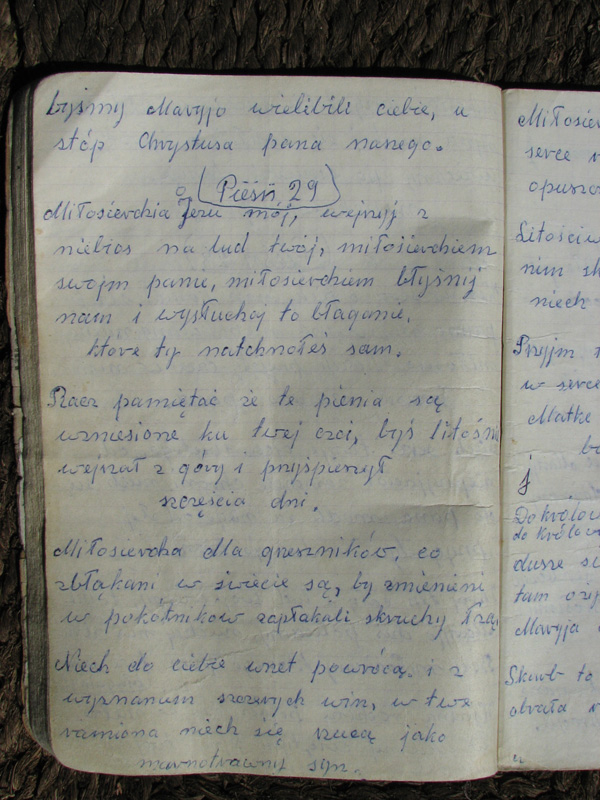 byśmy Maryjo wielibili ciebie, u
stóp Chrystusa pana naszego.
Pieśń 29
Miłosierdzia Jezu mój, wejrzyj z
niebios na lud twój, miłosierdziem
swojm panie, miłosierdziem błyśnij
nam i wysłuchaj to błaganie,
ktore ty natchnołeś sam.
Racz pamiętać że te pienia są
wzniesione ku twej czci, byś litośnie
wejrzał z góry i przyśpieszył
szczęścia dni.
Miłosierdzia dla grzeszników, co
zbłąkani w świecie są, by zmienieni
w pokótnikow zapłakali skruchy łzą,
Niech do ciebie wnet powrócą, i z
wyznaniem szczerych win, w twe
ramiona niech się rzucą jako
marnotrawny syn.
Miłosier
serce
opuszc
Litościw
nim
niech
Przyjm
w serce
Matke
j
Do królow
do królow
dusze
tam
Maryja
Skarb to